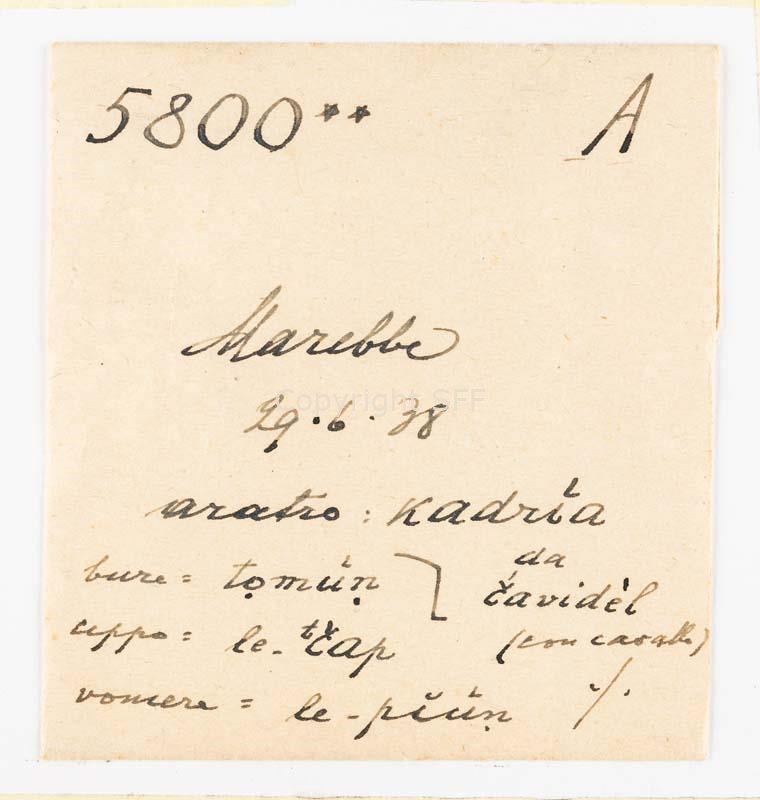 5800** A
Marebbe
Copyright SFF
29.6.38
aratro: kadría
bure = tọmúṇ
da čavidèl
ceppo = le-ᵗčap
(con cavallo)
vomere = le-pčúṇ ./.